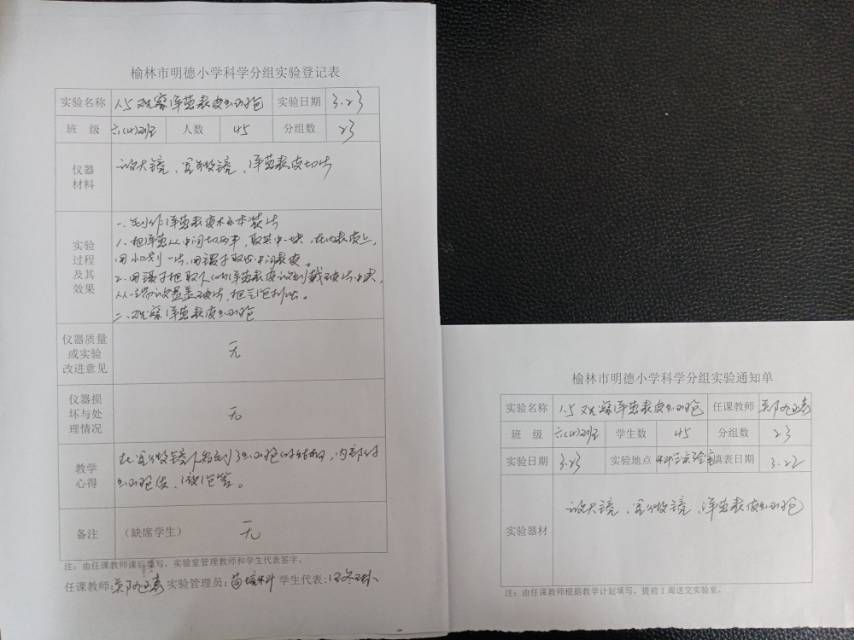 榆林市明德小学科学分组实验登记表
实验名称 1.5 观察洋葱表皮细胞 实验日期 3.23
班 级 六(4)班 人数 45 分组数 23
仪器材料 放大镜、显微镜、洋葱表皮切片
实验过程及其效果
一、制作洋葱表皮标本装片
1.把洋葱从中间切两半,取其中一块,在内表皮上,
用小刀划一片,用镊子取出中间表皮。
2.用镊子把取下的洋葱表皮放到载玻片中央,
从一端放盖盖玻片,把气泡排出。
二、观察洋葱表皮细胞
仪器质量或实验改进意见 无
仪器损坏与处理情况 无
教学心得
在显微镜下看到了细胞的结构,内部有
细胞
备注 (缺席学生) 无
注:由任课教师课后填写,实验室管理教师和学生代表签字。
任课教师: 实验管理员: 学生代表:
榆林市明德小学科学分组实验通知单
实验名称 1.5 观察洋葱表皮细胞 任课教师
班 级 六(4)班 学生数 45 分组数 23
实验日期 3.23 实验地点 科学实验室 填表日期 3.22
实验器材 放大镜、显微镜、洋葱表皮细胞
注:由任课教师根据教学计划填写,提前1周送交实验室。